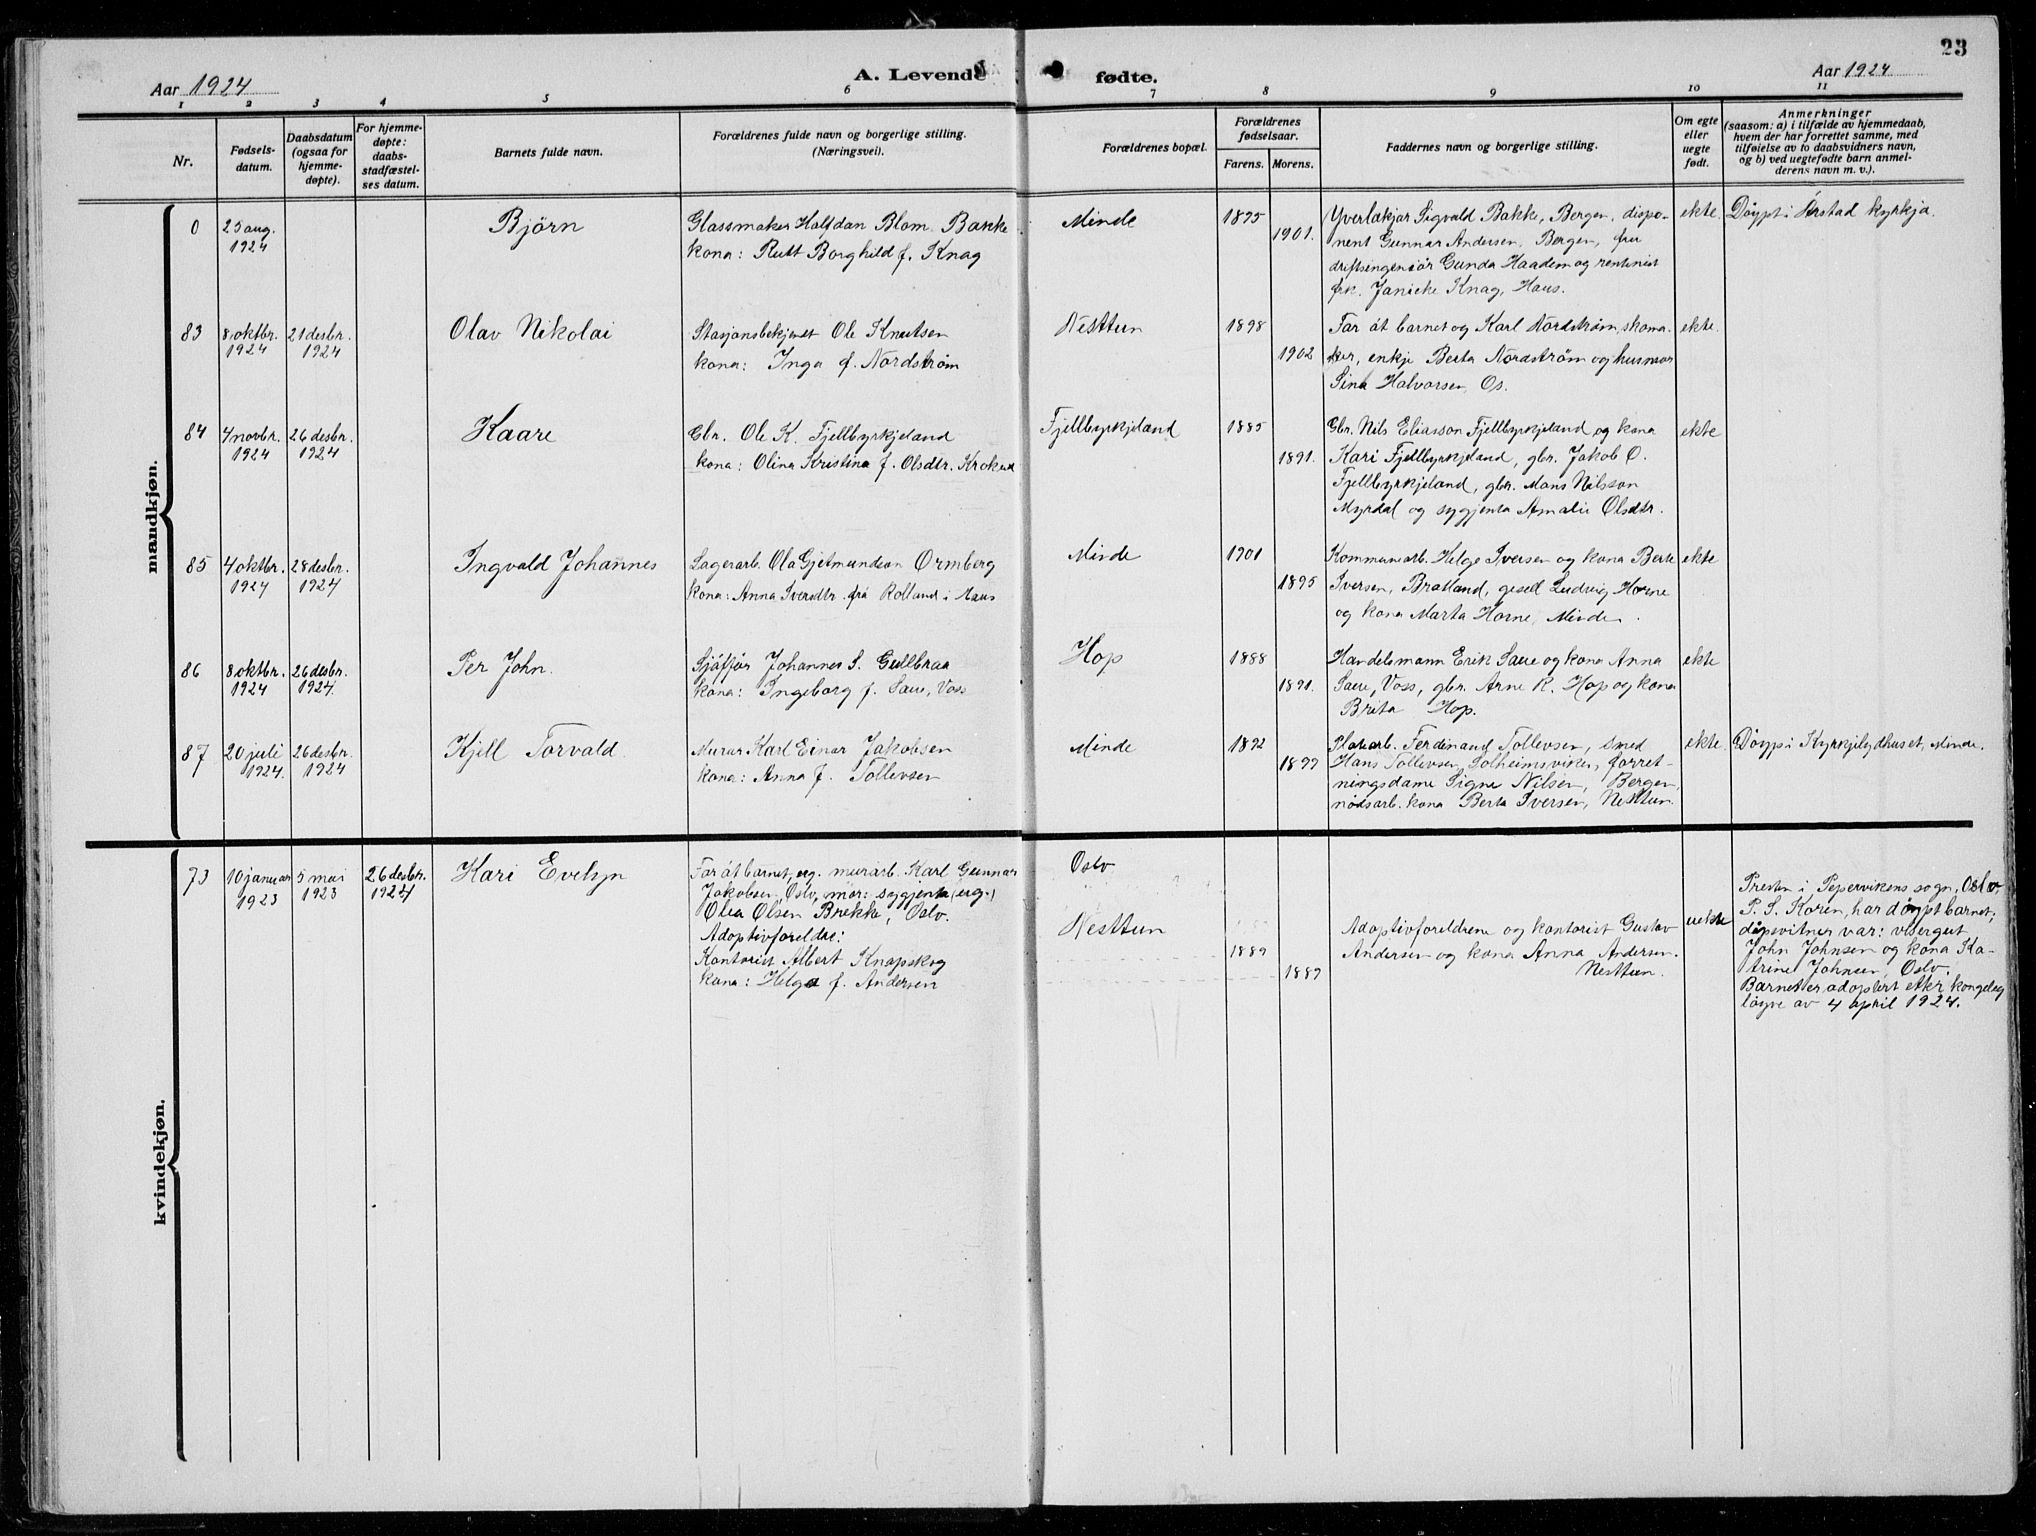 23
Aar 1924
A. Levende fødte.
Aar 1924
1 2 3 4 5 6 7 8 9 10 11
Nr.
Fødsels-
datum.
Daabsdatum
(ogsaa for
hjemme-
døpte).
For hjemme-
døpte:
daabs-
stadfæstel-
ses datum.
Barnets fulde navn.
Forældrenes fulde navn og borgerlige stilling.
(Næringsvei).
Forældrenes bopæl.
Forældrenes
fødselsaar.
Farens. Morens.
Faddernes navn og borgerlige stilling.
Om egte
eller
uegte
født.
Anmerkninger
(saasom: a) i tilfælde av hjemmedaab,
hvem der har forrettet samme, med
tilføielse av to daabsvidners navn,
og b) ved uegtefødte barn anmel-
derens navn m. v.).
mandkjøn.
0
25 aug.
1924
Bjørn
Glassmaker Halfdan Blom Bakke
kona: Rutt Borghild f. Knag
Minde
1895
1901.
Yverlækjar Sigvald Bakke, Bergen, dispo-
nent Gunnar Andersen, Bergen, fru
driftsingeniør Gunda Haadem og rentenist
frk. Janicke Knag, Haus.
ekte
Döypt i Årstad kyrkja.
83
8 oktbr.
1924
21 desbr.
1924
Olav Nikolai
Stasjonsbetjent Ole Knutsen
kona: Inga f. Nordstrøm
Nesttun
1898
1902
Far åt barnet og Karl Nordstrøm, skoma-
ker, enkje Berta Nordstrøm og husmor
Sina Halvorsen, Os.
ekte
84
4 novbr.
1924
26 desbr.
1924
Kaare
Gbr. Ole K. Fjellbyrkjeland
kona: Olina Kristina f. Olsdtr. Kroken
Fjellbyrkjeland
1885
1891.
Gbr. Nils Eliasson Fjellbyrkjeland og kona
Kari Fjellbyrkjeland, gbr. Jakob O.
Fjellbyrkjeland, gbr. Mons Nilsson
Myrdal og sygjenta Amalie Olsdtr.
ekte
85
4 oktbr.
1924
28 desbr.
1924
Ingvald Johannes
Lagerarb. Ola Gjetmundson Ormberg
kona: Anna Iversdtr. frå Rolland i Haus
Minde
1901
1895
Kommunearb. Helge Iversen og kona Berte
Iversen, Bratland, gesell Ludvig Horne
og kona Marta Horne, Minde.
ekte
86
8 oktbr.
1924
26 desbr.
1924.
Per John.
Sjåfjør Johannes S. Gullbraa
kona: Ingeborg f. Saue, Voss
Hop
1888
1891.
Handelsmann Erik Saue og kona Anna
Saue, Voss, gbr. Arne R. Hop og kona
Brita Hop.
ekte
87
20 juli
1924.
26 desbr.
1924
Kjell Torvald.
Murar Karl Einar Jakobsen
kona: Anna f. Tollevsen
Minde
1892
1899
Platearb. Ferdinand Tollevsen, smed
Hans Tollevsen, Solheimsviken, forret-
ningsdame Signe Nilsen, Bergen,
nødsarb. kona Berta Iversen, Nesttun.
ekte
Döypt i Kyrkjelydhuset, Minde.
kvindekjøn.
73
10 januar
1923
5 mai
1923
26 desbr.
1924
Kari Evelyn
Far åt barnet, ug. murarb. Karl Gunnar
Jakobsen, Oslo, mor: sygjenta (ug.)
Olea Olsen Brekke, Oslo.
Adoptivforeldre:
Kontorist Albert Knapskog
kona: Helga f. Andersen
Oslo
Nesttun
1889
1889
Adoptivforeldrene og kontorist Gustav
Andersen og kona Anna Andersen.
Nesttun.
uekte
Presten i Pipervikens sogn, Oslo
P. S. Koren, har döypt barnet;
dåpsvitner var: visergut
John Johnsen og kona Ka-
trine Johnsen, Oslo.
Barnet er adoptert etter kongeleg
løyve av 4 april 1924.